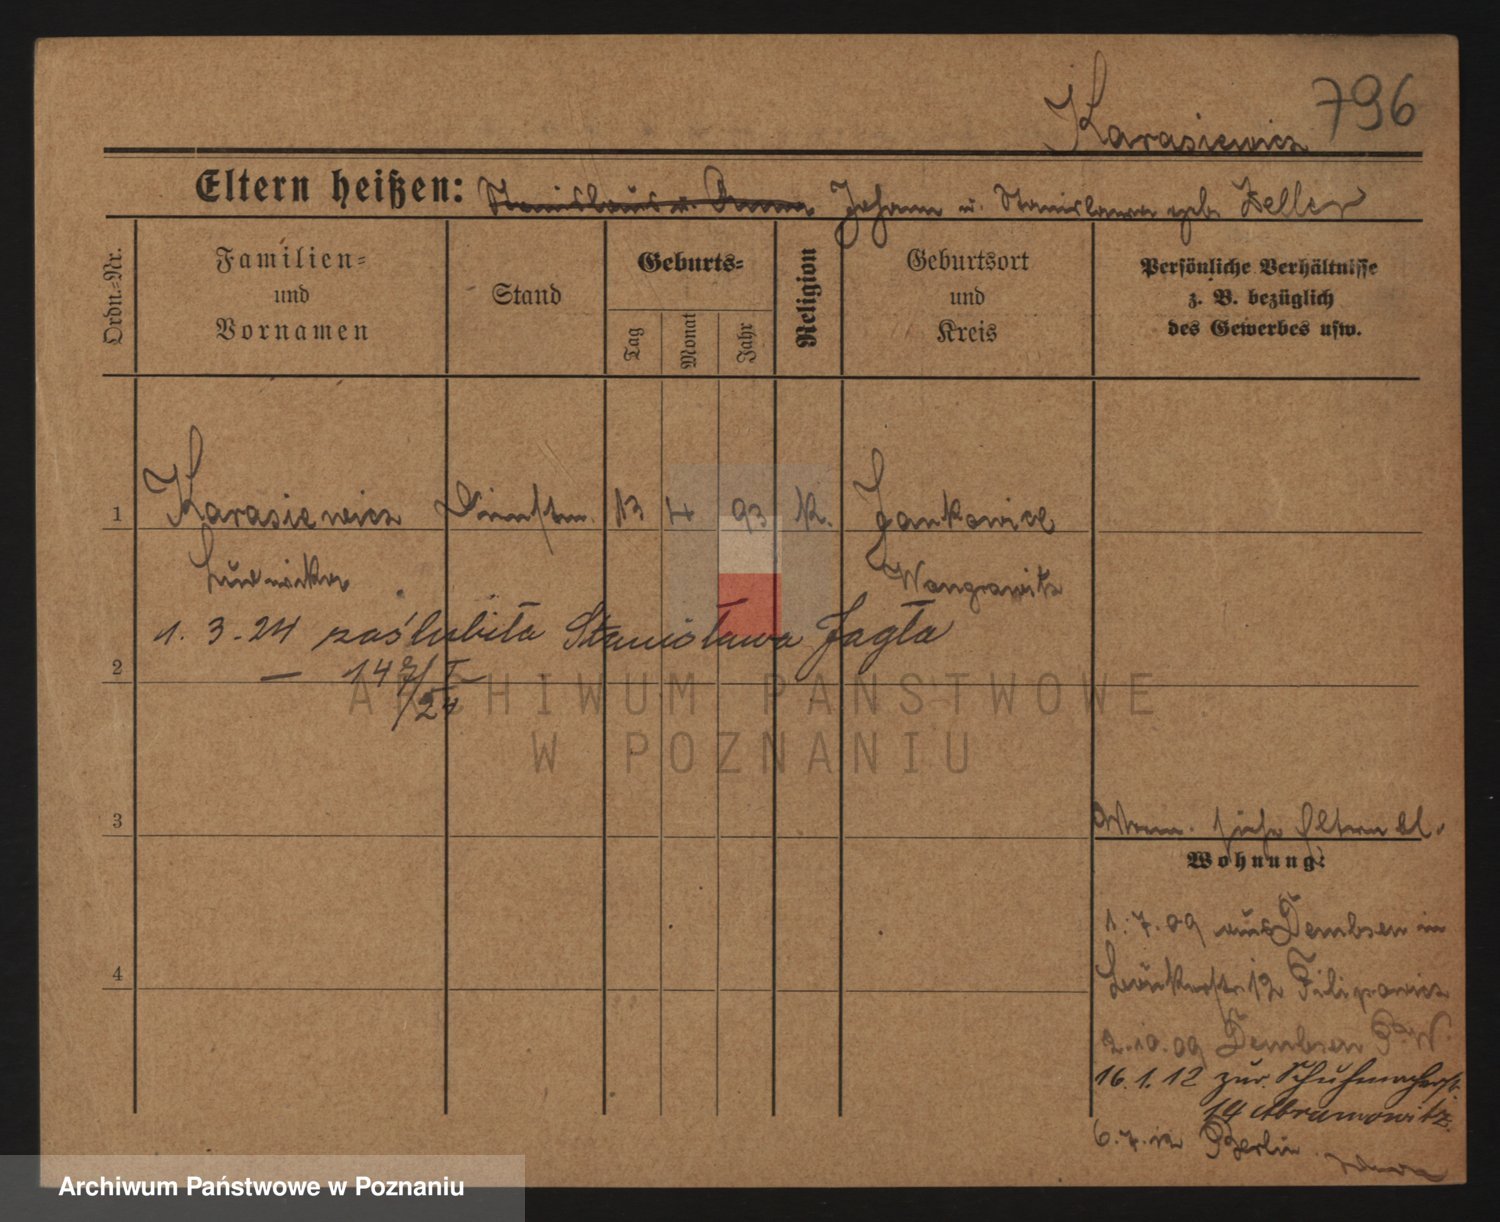 Karasiewicz 796
Eltern heißen: Stanislaus u. Anna Johann u. Stanislawa geb. Zeller
Ordn.-Nr.
Familien-
und
Vornamen
Stand
Geburts-
Tag
Monat
Jahr
Religion
Geburtsort
und
Kreis
Persönliche Verhältnisse
z. B. bezüglich
des Gewerbes usw.
1 Karasiewicz Dienstm. 13 4 93 K. Jankowice
Ludwika Wongrowitz
1. 3. 24 zaślubiła Stanisława Jagła
2
ARCHIWUM PAŃSTWOWE
W POZNANIU
3
siehe Eltern bl.
Wohnung:
1.7.09 aus Dembsen in
12 Filipowicz
4
2.10.09 Dembsen
16.1.12 zur. Schuhmacherst.
19 Abramowitz.
6.7.12 Berlin
Archiwum Państwowe w Poznaniu